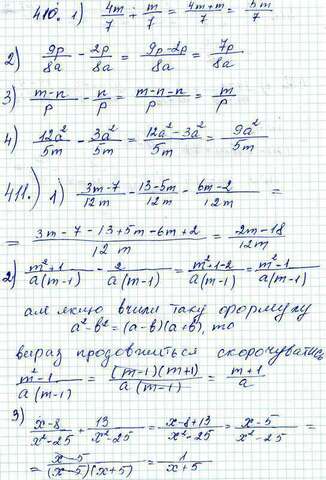 410. 1) 4m/7 + m/7 = (4m+m)/7 = 5m/7
2) 9p/8a - 2p/8a = (9p-2p)/8a = 7p/8a
3) (m-n)/p - n/p = (m-n-n)/p = m/p
4) 12a²/5m - 3a²/5m = (12a²-3a²)/5m = 9a²/5m
411.) 1) (3m-7)/12m - (13-5m)/12m - (6m-2)/12m =
= (3m-7-13+5m-6m+2)/12m = (2m-18)/12m
2) (m²+1)/a(m-1) - 2/a(m-1) = (m²+1-2)/a(m-1) = (m²-1)/a(m-1)
якщо вчили таку формулу
a²-b² = (a-b)(a+b), то
вираз продовжиться скорочуватись
(m²-1)/a(m-1) = (m-1)(m+1)/a(m-1) = (m+1)/a
3)
(x-8)/(x²-25) + 13/(x²-25) = (x-8+13)/(x²-25) = (x-5)/(x²-25) =
= (x-5)/(x-5)(x+5) = 1/(x+5)